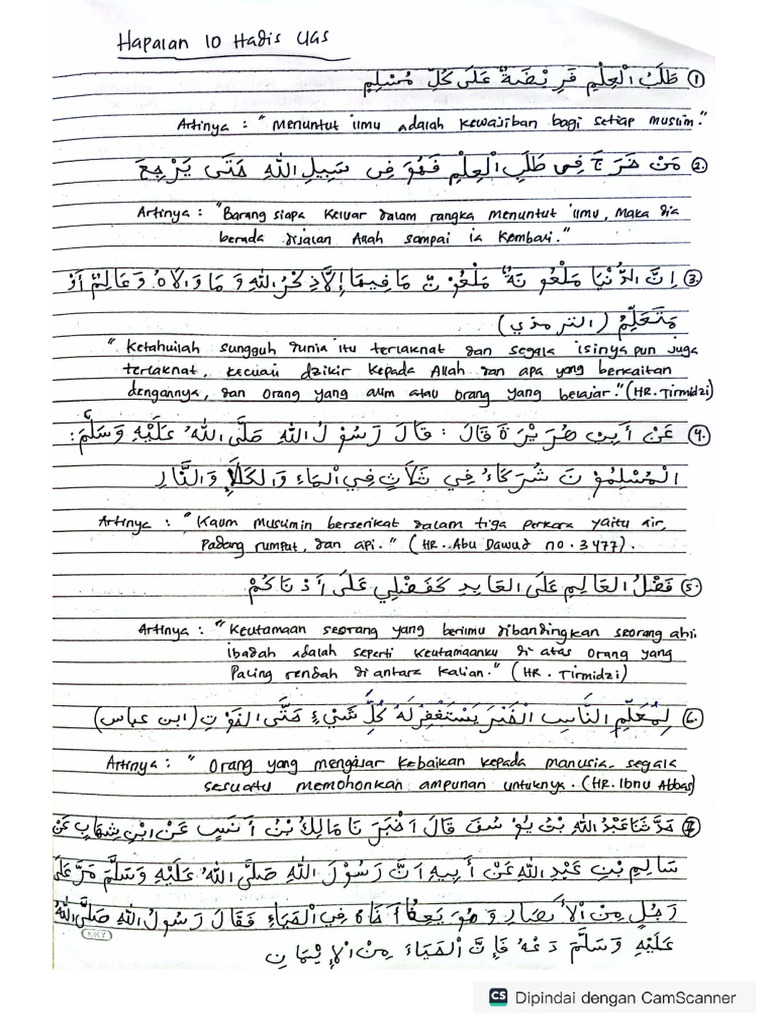 Hapalan 10 Hadis UAS
① طَلَبُ الْعِلْمِ فَرِيْضَةٌ عَلَى كُلِّ مُسْلِمٍ
Artinya : "Menuntut ilmu adalah kewajiban bagi setiap muslim."
②. مَنْ خَرَجَ فِى طَلَبِ الْعِلْمِ فَهُوَ فِى سَبِيلِ اللهِ حَتَى يَرْجِعَ
Artinya : "Barang siapa keluar dalam rangka menuntut ilmu, maka dia
berada dijalan Allah sampai ia kembali."
③. اِنَّ الدُّنْيَا مَلْعُوْنَةٌ مَلْعُوْنٌ مَا فِيهَا إِلاَّ ذِكْرُ اللهِ وَ مَا وَالاَهُ وَعَالِمٌ أَوْ
مَتَعَلِّمٌ (الترمذي)
" Ketahuilah sungguh dunia itu terlaknat dan segala isinya pun juga
terlaknat, kecuali dzikir kepada Allah dan apa yang berkaitan
dengannya, dan orang yang alim atau orang yang belajar." (HR. Tirmidzi)
④. عَنْ أَبِى هُرَيْرَةَ قَالَ : قَالَ رَسُوْلُ اللهِ صَلَّى اللهُ عَلَيْهِ وَسَلَّمَ :
الْمُسْلِمُوْنَ شُرَكَاءُ فِي ثَلَاثٍ فِي الْمَاءِ وَالكَلَإِ وَالنَّارِ
Artinya : "Kaum muslimin berserikat dalam tiga perkara yaitu air,
Padang rumput, dan api." ( HR. Abu Dawud no. 3477).
⑤. فَضْلُ العَالِمِ عَلَى العَابِدِ كَفَضْلِي عَلَى أَدْنَاكُمْ
Artinya : "Keutamaan seorang yang berilmu dibandingkan seorang ahli
ibadah adalah seperti keutamaanku di atas orang yang
Paling rendah di antara kalian." (HR. Tirmidzi)
⑥. لِمُعَلِّمِ النَّاسِ الْخَيْرَ يَسْتَغْفِرُ لَهُ كُلُّ شَيْءٍ حَتَّى الْحُوْتِ (ابن عباس)
Artinya : " Orang yang mengajar kebaikan kepada manusia, segala
sesuatu memohonkan ampunan untuknya. (HR. Ibnu Abbas)
⑦ حَدَّثَنَا عَبْدُ اللهِ بْنُ يُوْسُفَ قَالَ أَخْبَرَنَا مَالِكُ بْنُ أَنَسٍ عَنْ ابْنِ شِهَابٍ عَنْ
سَالِمِ بْنِ عَبْدِ اللهِ عَنْ أَبِيهِ أَنَّ رَسُوْلَ اللهِ صَلَّى اللهُ عَلَيْهِ وَسَلَّمَ مَرَّ عَلَى
رَجُلٍ مِنْ الْأَنْصَارِ وَهُوَ يَعِظُ أَخَاهُ فِي الْحَيَاءِ فَقَالَ رَسُولُ اللهِ صَلَّى اللهُ
عَلَيْهِ وَسَلَّمَ دَعْهُ فَإِنَّ الْحَيَاءَ مِنْ الْإِيْمَانِ
KKY
CS Dipindai dengan CamScanner